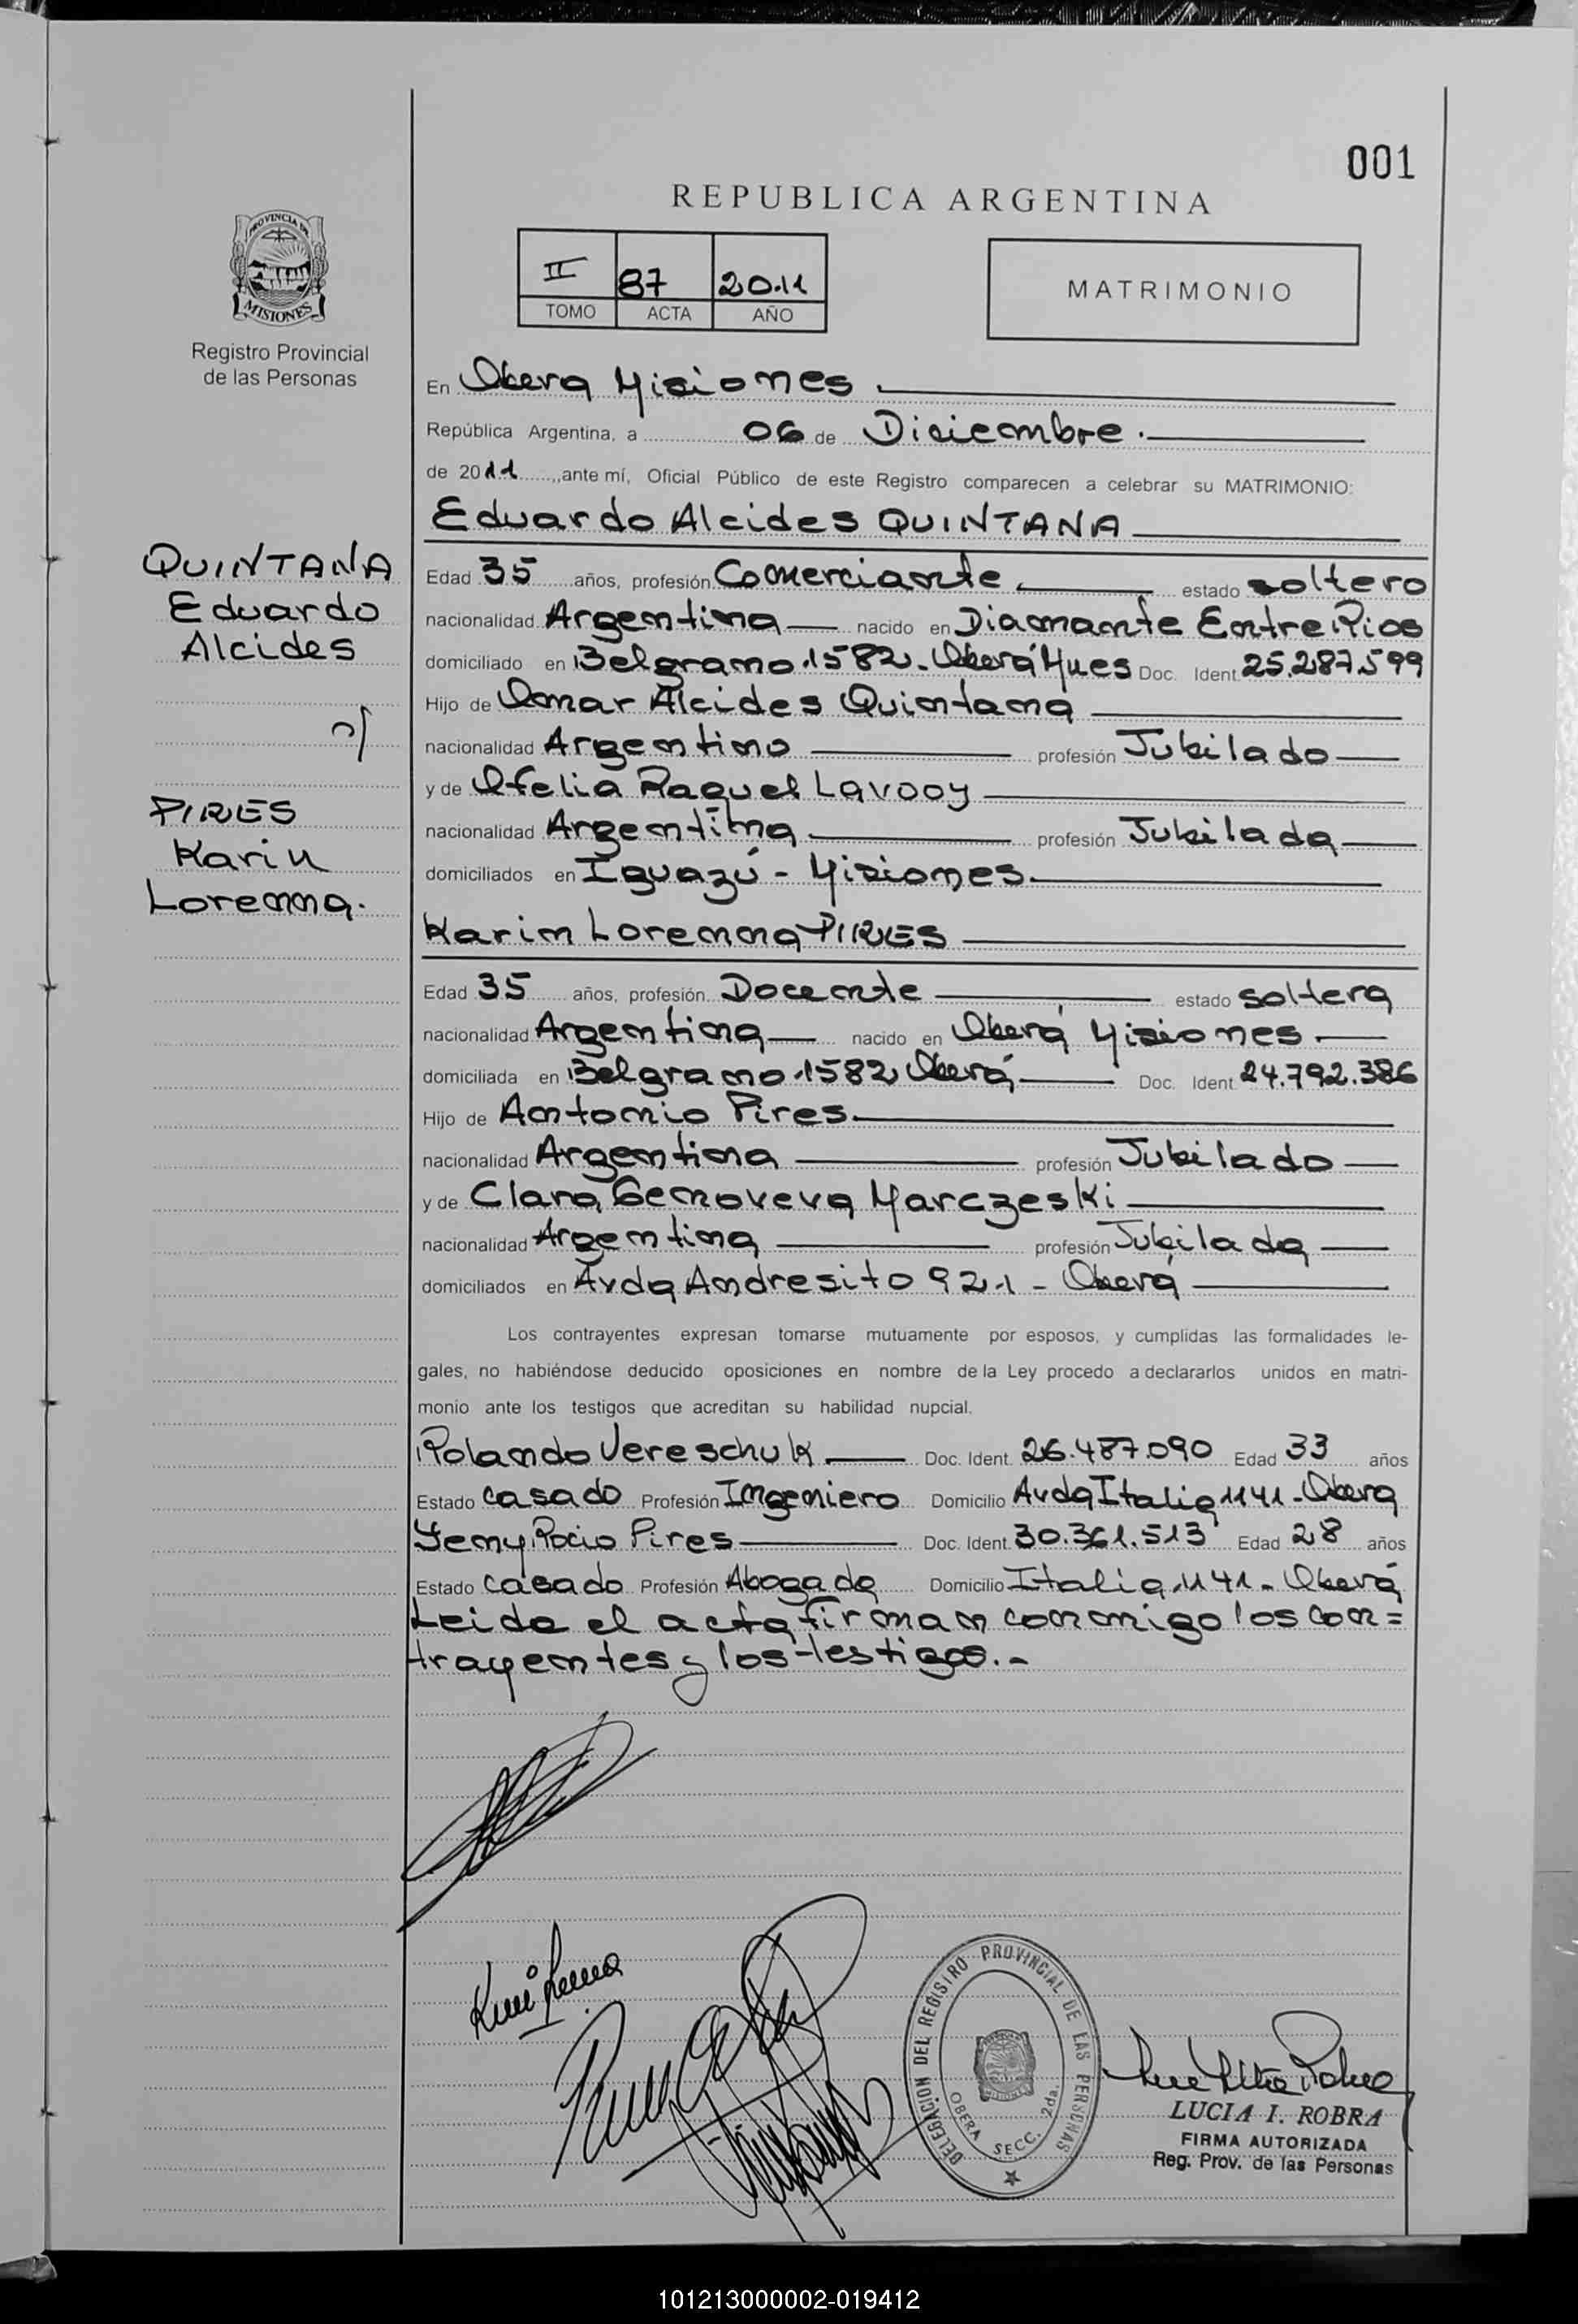 001
REPUBLICA ARGENTINA
PROVINCIA DE
MISIONES
Registro Provincial
de las Personas
II 87 20.11
TOMO ACTA AÑO
MATRIMONIO
En Obera Misiones.
República Argentina, a 06 de Diciembre.
de 2011, ante mí, Oficial Público de este Registro comparecen a celebrar su MATRIMONIO:
Eduardo Alcides QUINTANA
QUINTANA
Eduardo
Alcides
c/
PIRES
Karin
Lorenna.
Edad 35 años, profesión Comerciante. estado soltero
nacionalidad Argentina nacido en Diamante Entre Rios
domiciliado en Belgrano 1582. Oberá Mnes Doc. Ident. 25.287.599
Hijo de Omar Alcides Quintana
nacionalidad Argentino profesión Jubilado
y de Ofelia Raquel Lavooy
nacionalidad Argentina profesión Jubilada
domiciliados en Iguazú - Misiones.
Karin Lorenna PIRES
Edad 35 años, profesión Docente estado soltera
nacionalidad Argentina nacido en Oberá Misiones.
domiciliada en Belgrano 1582 Oberá Doc. Ident. 24.792.386
Hijo de Antonio Pires.
nacionalidad Argentina profesión Jubilado
y de Clara Genoveva Marczeski
nacionalidad Argentina profesión Jubilada
domiciliados en Avda Andresito 921 - Oberá
Los contrayentes expresan tomarse mutuamente por esposos, y cumplidas las formalidades le-
gales, no habiéndose deducido oposiciones en nombre de la Ley procedo a declararlos unidos en matri-
monio ante los testigos que acreditan su habilidad nupcial.
Rolando Vereschuk. Doc. Ident. 26.487.090 Edad 33 años
Estado casado Profesión Ingeniero Domicilio Avda Italia 1141 - Obera
Yeny Rocio Pires Doc. Ident. 30.361.513 Edad 28 años
Estado casado Profesión Abogada Domicilio Italia 1141 - Oberá
Leida el acta firman conmigo los con=
trayentes y los testigos.-
DELEGACION DEL REGISTRO PROVINCIAL DE LAS PERSONAS
OBERA SECC. 2da.
LUCIA I. ROBRA
FIRMA AUTORIZADA
Reg. Prov. de las Personas
101213000002-019412